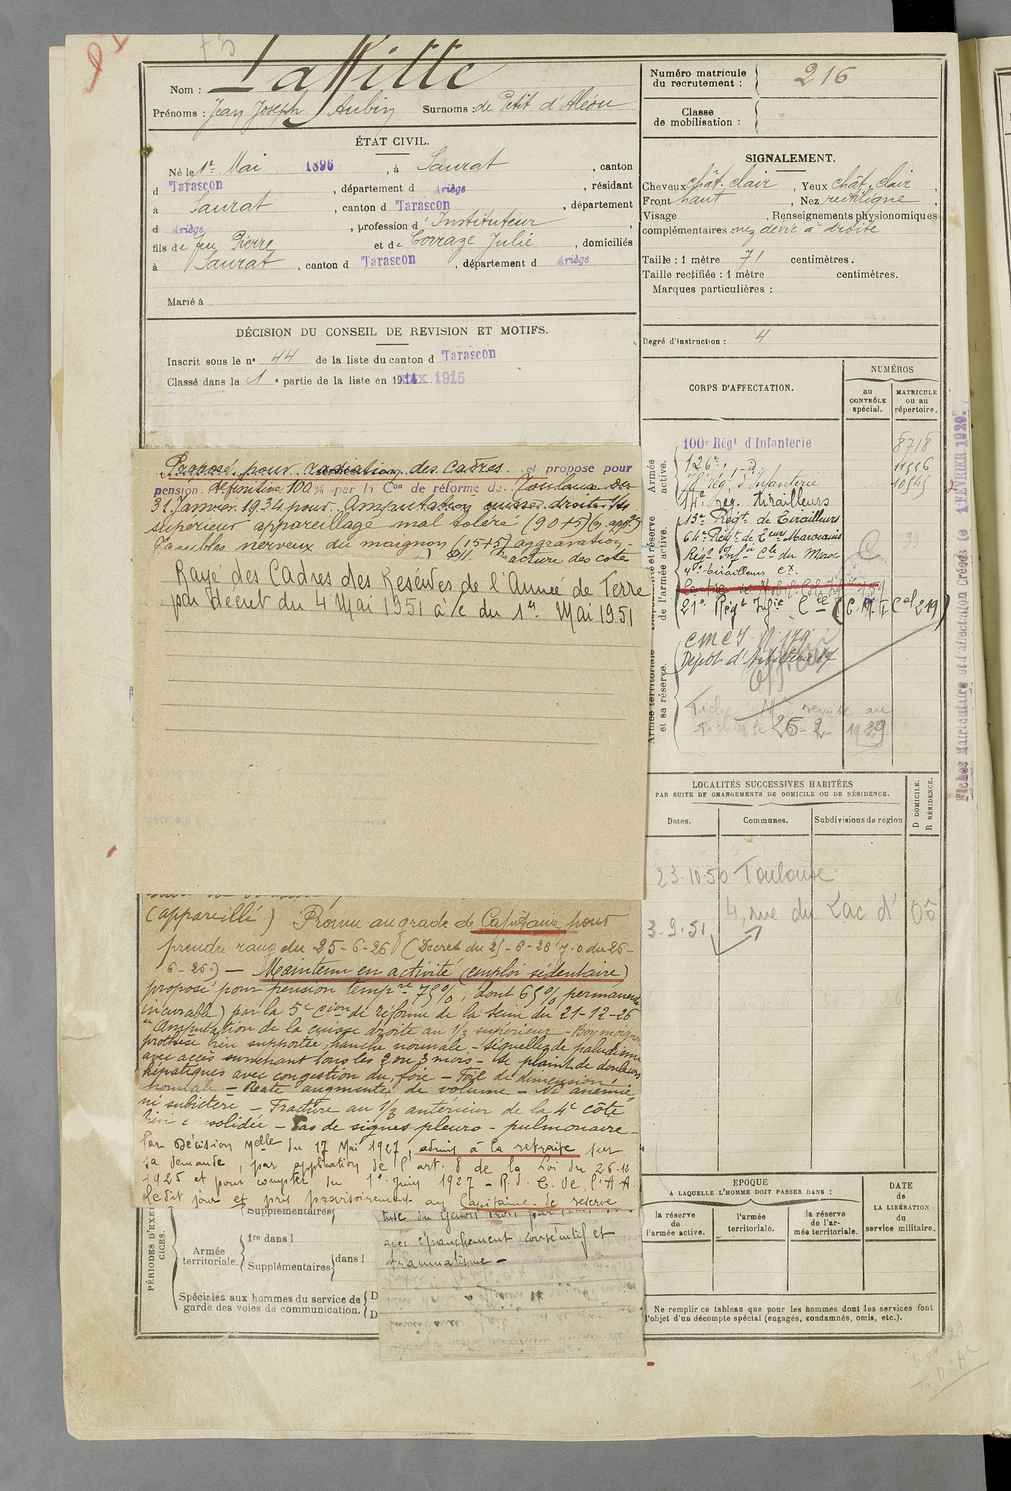 Nom : Laffitte
Prénoms : Jean Joseph Aubin Surnoms : de Petit d'Aléou
ÉTAT CIVIL.
Né le 1er Mai 1896, à Saurat, canton
d Tarascon, département d Ariège, résidant
à Saurat, canton d Tarascon, département
d Ariège, profession d'Instituteur
fils de feu Pierre et de Corraze Julie, domiciliés
à Saurat, canton d Tarascon, département d Ariège
Marié à
DÉCISION DU CONSEIL DE REVISION ET MOTIFS.
Inscrit sous le n° 44 de la liste du canton d Tarascon
Classé dans la 1e partie de la liste en 1915
Proposé pour radiation des cadres et propose pour
pension définitive 100% par la Con de réforme de Toulouse du
31 Janvier 1934 pour Amputation cuisse droite 1/3
supérieur appareillage mal toléré (90+5)
Troubles nerveux du moignon (15+5) aggravation
fracture des côtes
Rayé des Cadres des Réserves de l'Armée de Terre
par décret du 4 Mai 1951 à/c du 1er Mai 1951
(appareillé) Promu au grade de Capitaine pour
prendre rang du 25-6-26 (Décret du 25-6-26 J.O du 26-
6-26) — Maintenu en activité (emploi sédentaire)
proposé pour pension tempre 75%, dont 65% permanente
incurable) par la 5e Cion de réforme de la Seine du 21-12-26
"Amputation de la cuisse droite au 1/3 supérieur - Bon moignon
prothèse bien supportée, hanche normale - séquelles de paludisme
avec accès survenant tous les 2 ou 3 mois - se plaint de douleurs
hépatiques avec congestion du foie - Foie de dimension
normale - Rate augmentée de volume - Ni anémie
ni subictère - Fracture au 1/3 antérieur de la 4e côte
bien consolidée - Pas de signes pleuro-pulmonaire -
Par Décision Melle du 17 Mai 1927, admis à la retraite sur
sa demande, par application de l'art. 8 de la Loi du 26.12
1925 et pour compter du 1er Juin 1927 - R.d. C. de l'A.A.
ledit jour et pris provisoirement au Capitaine de réserve
avec épanchement consécutif et
traumatisme -
PÉRIODES D'EXERCICES.
Supplémentaires
Armée territoriale.
1re dans l
Supplémentaires dans l
Spéciales aux hommes du service de
garde des voies de communication.
Numéro matricule
du recrutement : 216
Classe
de mobilisation :
SIGNALEMENT.
Cheveux chât. clair, Yeux chât. clair,
Front haut, Nez rectiligne,
Visage , Renseignements physionomiques
complémentaires nez dévié à droite
Taille : 1 mètre 71 centimètres.
Taille rectifiée : 1 mètre centimètres.
Marques particulières :
Degré d'instruction : 4
CORPS D'AFFECTATION.
NUMÉROS
au CONTRÔLE spécial.
MATRICULE OU AU répertoire.
Armée active.
et réserve de l'armée active.
Armée territoriale et sa réserve.
100e Régt d'Infanterie 8718
126e 11556
Rég. d'Infanterie 10545
14e rég. tirailleurs
15e Régt de Tirailleurs
64e Régt de Teurs Marocains
Régt Infie Cle du Maroc
4e tirailleurs
21e Régt Infie Cle (C.M.I. Cal 219)
CMCI N° 179
Dépôt d'Artillerie 17
Officier
Fiche remise au
25-2-1939
Fiches Matriculaire et d'affectation Créées le 1 FÉVRIER 1929.
LOCALITÉS SUCCESSIVES HABITÉES
PAR SUITE DE CHANGEMENTS DE DOMICILE OU DE RÉSIDENCE.
Dates. Communes. Subdivisions de région D DOMICILE. R RÉSIDENCE.
23.10.50 Toulouse
3-9-51 4, rue du Lac d'Oô
EPOQUE
A LAQUELLE L'HOMME DOIT PASSER DANS :
la réserve de l'armée active.
l'armée territoriale.
la réserve de l'armée territoriale.
DATE de LA LIBÉRATION du service militaire.
Ne remplir ce tableau que pour les hommes dont les services font
l'objet d'un décompte spécial (engagés, condamnés, omis, etc.).